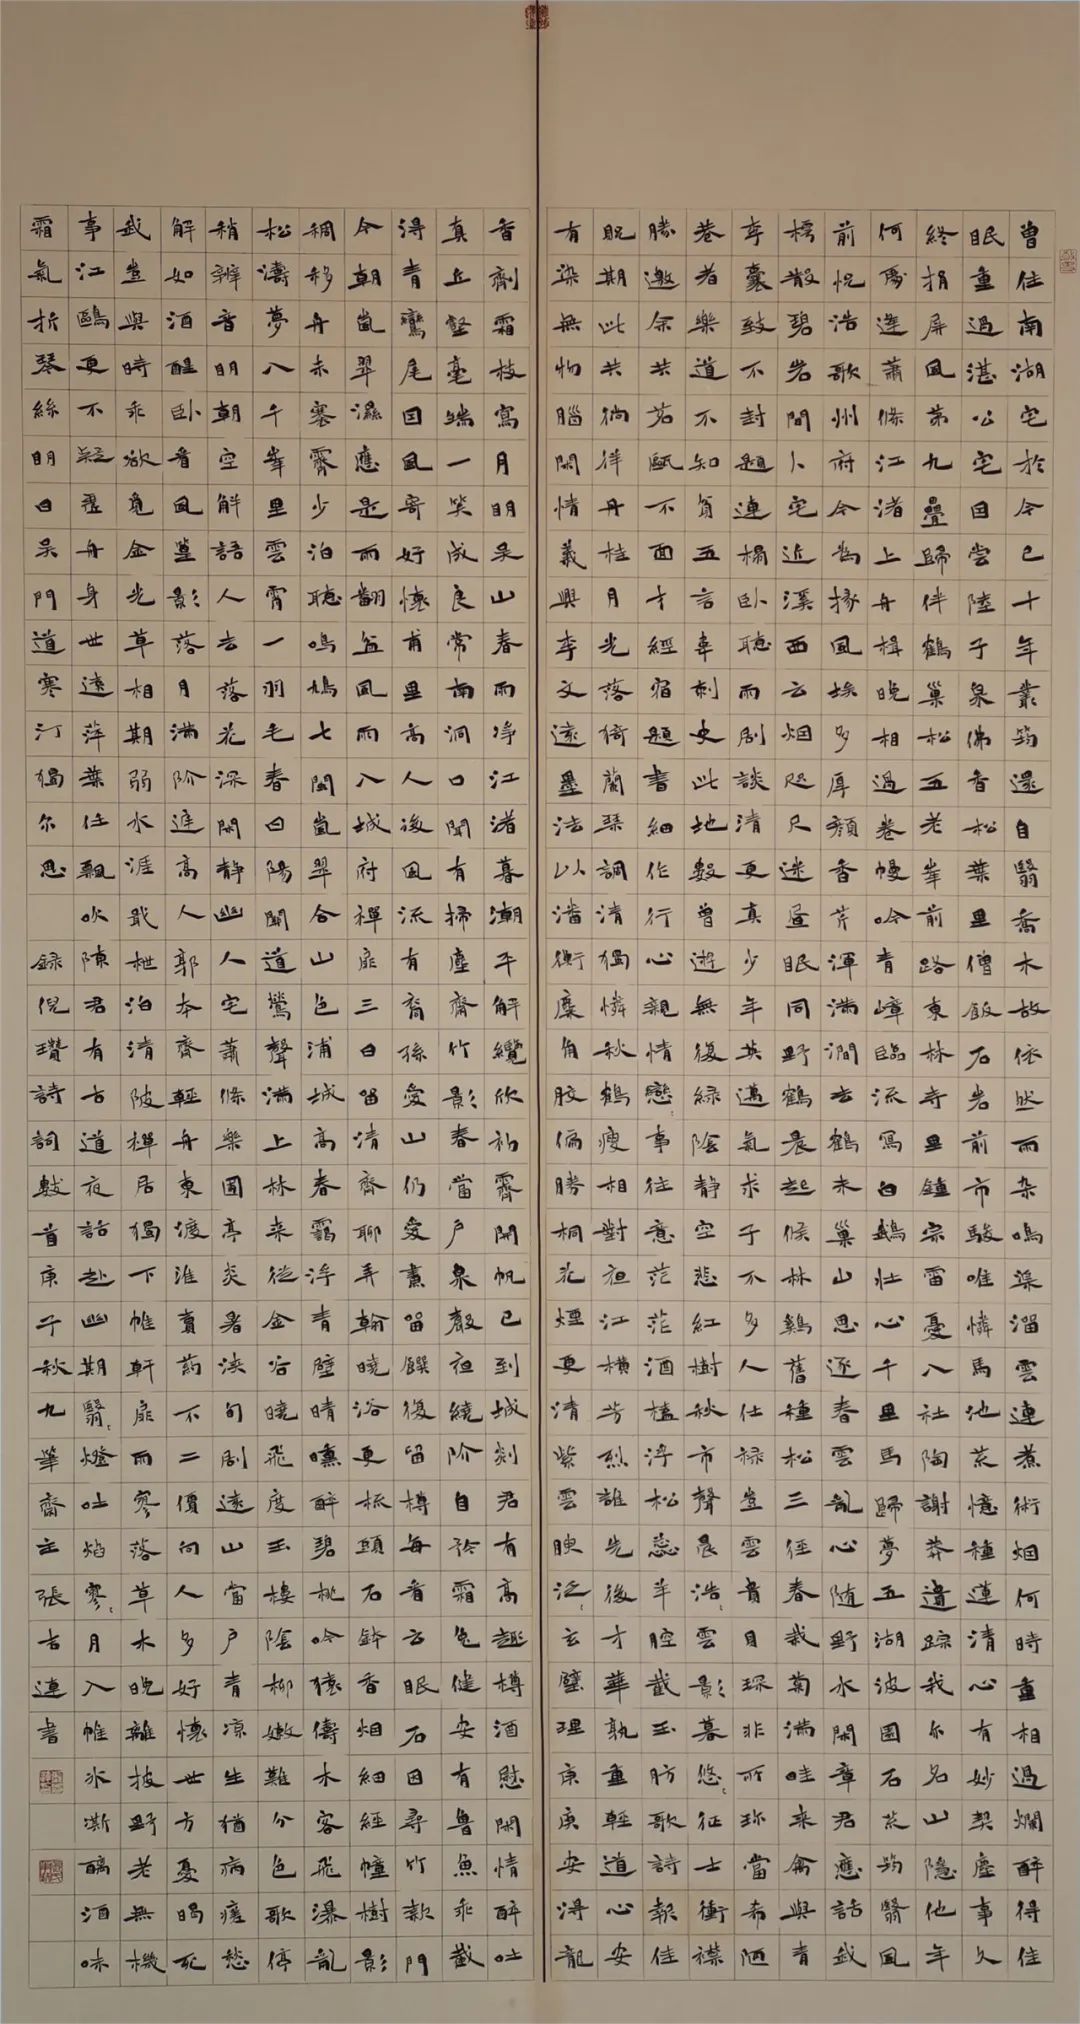 曾住南湖宅於今已十年叢筠還自翳喬木故依然而杂鳴渠溜雲連煮術烟何時重相過爛醉得佳
眠重過湛公宅因尝陸子泉佛香松葉里僧飯石岩前市駿唯憐馬池荒憶種蓮清心有妙契塵事久
終捐屏風第九疊歸伴鶴巢松五老峯前路東林寺里鐘宗雷憂八社陶謝莽遺踪我尔名山隐他年
何處逢蕭條江渚上舟楫晚相過卷幔吟青嶂臨流寫白鵝壮心千里馬歸夢五湖波園石荒筠翳風
前怳浩歌州府今為掾風埃多厚颜香芹渾满澗去鶴未巢山思逐春雲亂心随野水閑章君應話我
樗散碧岩間卜宅近溪西云烟咫尺迷昼眠同野鶴晨起候林鷄舊種松三徑春栽菊满畦来禽與青
李囊致不封題連榻卧聽雨剧談清更真少年英邁氣求于不多人仕禄豈雲貴目琛非所珍當希陋
巷者樂道不知貧五言韋刺史此地数曾遊無復緑陰静空悲紅樹秋市聲晨浩浩雲影暮悠悠征士衝襟
勝邀余共茗甌不面才經宿題書細作行心親情戀戀事往意茫茫酒榼浮松蕊羊腔截玉肪歌詩報佳
貺期此共徜徉丹桂月光落猗蘭琴調清獨憐秋鶴瘦相對夜江横芳烈誰先後才華孰重輕道心安
有染無物腦閑情義興李文遠墨法以潘衡麋角胶偏勝桐花煙更清紫雲腴泛泛玄壁理庚庚安得龍
香劑霜枝寫月明呆山春雨净江渚暮潮平解纜欣初霽開帆已到城剡君有高趣樽酒慰閑情醉吐
真丘壑毫端一笑成良常南洞口聞有掃塵齋竹影春當户泉聲夜繞阶自矜霜兔健安有魯魚乖截
得青鸞尾因風寄好懷甫里高人後風流有裔孫愛山仍爱畫留饌復留樽每看云眠石因尋竹款門
今朝嵐翠濕應是雨翻盆風雨入城府禪扉三日留清齋聊弄翰曉浴更梳頭石鉢香烟細經幢樹影
稠移舟未寒霽少泊聽鳴鳩七閩嵐翠合山色浦城高春靄浮青壁晴曛醉碧桃吟猿儔木客飛瀑亂
松濤夢入千峯里雲霄一羽毛春日陽關道鶯聲满上林来從金谷曉飛度玉樓陰柳嫩難分色歌停
稍辨音明朝空解語人去落花深閑静幽人宅蕭條樂圃亭炎暑浹旬剧遠山當户青凉生猶病瘧愁
解如酒醒卧看風篁影落月满阶進高人郭本齊輕舟東渡淮賣药不二價向人多好懷世方憂暍死
我豈與時乖欲覓金光草相期弱水涯戢枻泊清陂禪居獨下帷軒扉雨寥落草木晚離披野老無機
事江鷗更不疑孤舟身世遠萍葉任飄吹陳君有古道夜話赴幽期翳翳燈吐焰寥寥月入帷冰澌醨酒味
霜氣折琴絲明日吴門道寒汀獨尔思
録倪瓚詩詞數首庚子秋九華齋主張古連書